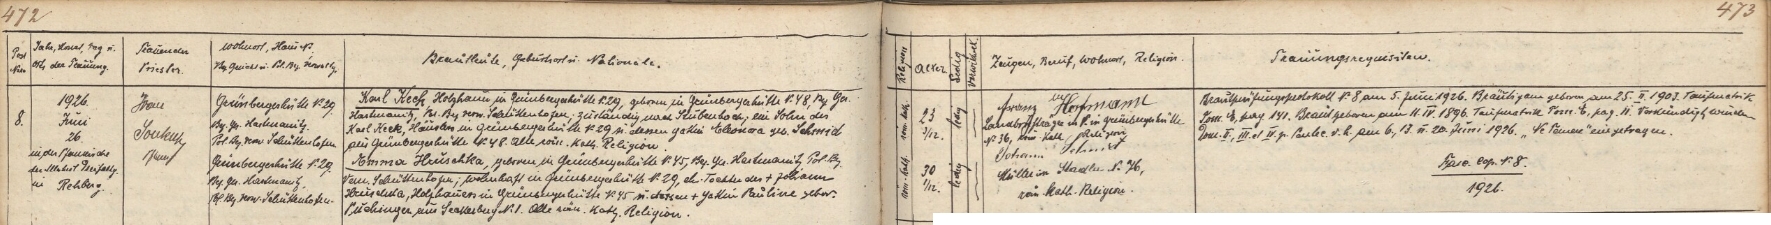 472
473
Post Nro
Jahr, Monat, Tag u.
Ort der Trauung.
Trauender
Priester.
Wohnort, Haus №
Bez. Gericht u. Pol. Bez. Verwaltg.
Brautleute, Geburtsort u. Nationale.
Religion
Alter
Ledig
Verwitwet
Zeugen, Beruf, Wohnort, Religion.
Trauungsrequisiten.
8.
1926.
Juni
26.
in der Pfarrkirche
in Rehberg.
Grünbergerhütte № 29,
Bez. Ger. Hartmanitz
Pol. Bez. Verw. Schüttenhofen
Grünbergerhütte № 29.
Bez. Ger. Hartmanitz.
Pol. Bez. Verw. Schüttenhofen.
Karl Keck, Holzhauer in Grünbergerhütte № 29, geboren in Grünbergerhütte № 48, Bez. Ger.
Hartmanitz, Pol. Bez. Verw. Schüttenhofen, zuständig nach Stubenbach, ein Sohn des
Karl Keck, Häuslers in Grünbergerhütte № 29 u. dessen Gattin Eleonora geb. Schmid
aus Grünbergerhütte № 48. Alle röm. kath. Religion.
Anna Hruschka, geboren in Grünbergerhütte № 45, Bez. Ger. Hartmanitz Pol. Bez.
Verw. Schüttenhofen; wohnhaft in Grünbergerhütte № 29, eh. Tochter des † Johann
Hruschka, Holzhauers in Grünbergerhütte № 45 u. dessen † Gattin Pauline gebor.
Püchinger aus Seckerberg № 1. Alle röm. kath. Religion.
röm. kath.
23
3/12.
ledig
röm. kath.
30
2/12.
ledig
Franz Hofmann
in Grünbergerhütte
№ 36, röm. kath. Religion
Johann Schmid
Müller in Stadln № 76,
röm. kath. Religion.
Brautprüfungsprotokoll № 8 am 5. Juni 1926. Bräutigam geboren am 25. II. 1903. Taufmatrik
Tom. E, pag. 141. Braut geboren am 14. IV. 1896. Taufmatrik Tom. E, pag. 11. Verkündigt wurden
Dom. II., III. et IV. p. Pent. d. h. am 6., 13. u. 20. Juni 1926. eingetragen.
Fasc. Cop. № 8.
1926.